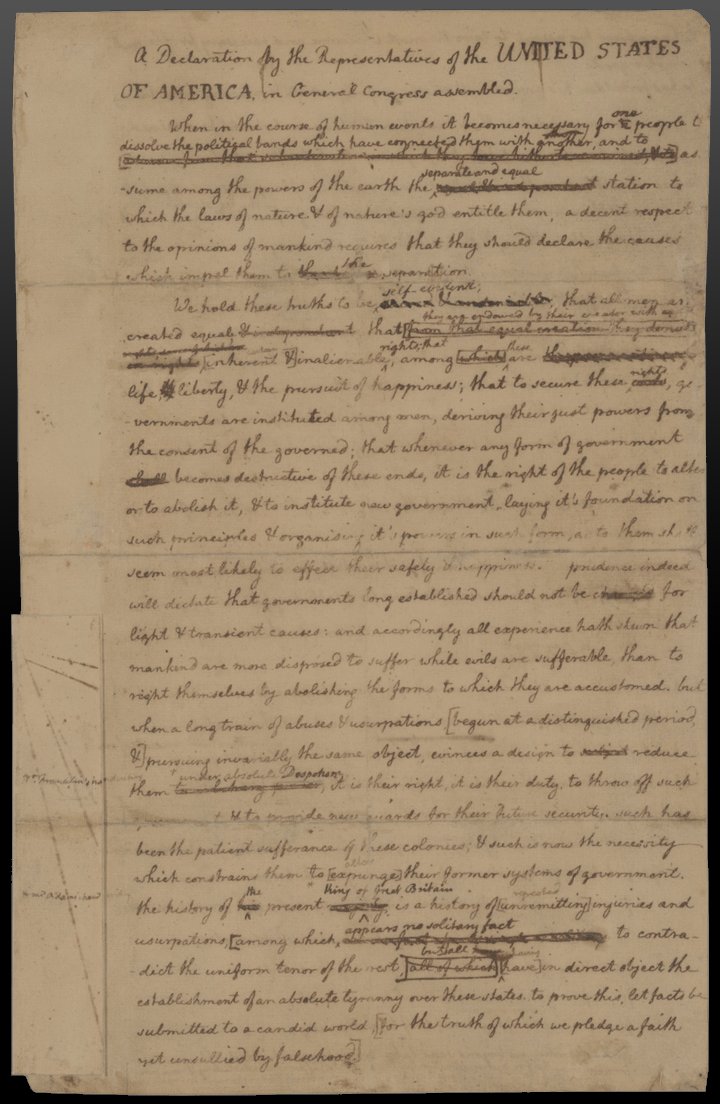 A Declaration by the Representatives of the UNITED STATES
OF AMERICA, in General Congress assembled.
When in the course of human events it becomes necessary for one people to
dissolve the political bands which have connected them with another, and to
as
separate and equal
-sume among the powers of the earth the station to
which the laws of nature & of nature's god entitle them, a decent respect
to the opinions of mankind requires that they should declare the causes
which impel them to the separation.
self-evident;
We hold these truths to be that all men are
they are endowed by their creator with
created equal & independent, that [from that equal creation they derive
rights; that these
[inherent &] inalienable, among [which] are
rights
life, liberty, & the pursuit of happiness; that to secure these, go-
-vernments are instituted among men, deriving their just powers from
the consent of the governed; that whenever any form of government
shall becomes destructive of these ends, it is the right of the people to alter
or to abolish it, & to institute new government, laying it's foundation on
such principles & organising it's powers in such form, as to them shall
seem most likely to effect their safety & happiness. prudence indeed
will dictate that governments long established should not be changed for
light & transient causes: and accordingly all experience hath shewn that
mankind are more disposed to suffer while evils are sufferable, than to
right themselves by abolishing the forms to which they are accustomed. but
when a long train of abuses & usurpations [begun at a distinguished period,
&] pursuing invariably the same object, evinces a design to subject reduce
under absolute Despotism
them it is their right, it is their duty, to throw off such
& to provide new guards for their future security. such has
been the patient sufferance of these colonies; & such is now the necessity
alter
which constrains them to [expunge] their former systems of government.
the King of Great Britain repeated
the history of his present is a history of [unremitting] injuries and
appears no solitary fact
usurpations, [among which, to contra-
but all
-dict the uniform tenor of the rest, [all of which] [have] in direct object the
establishment of an absolute tyranny over these states. to prove this, let facts be
submitted to a candid world, [for the truth of which we pledge a faith
yet unsullied by falsehood.]